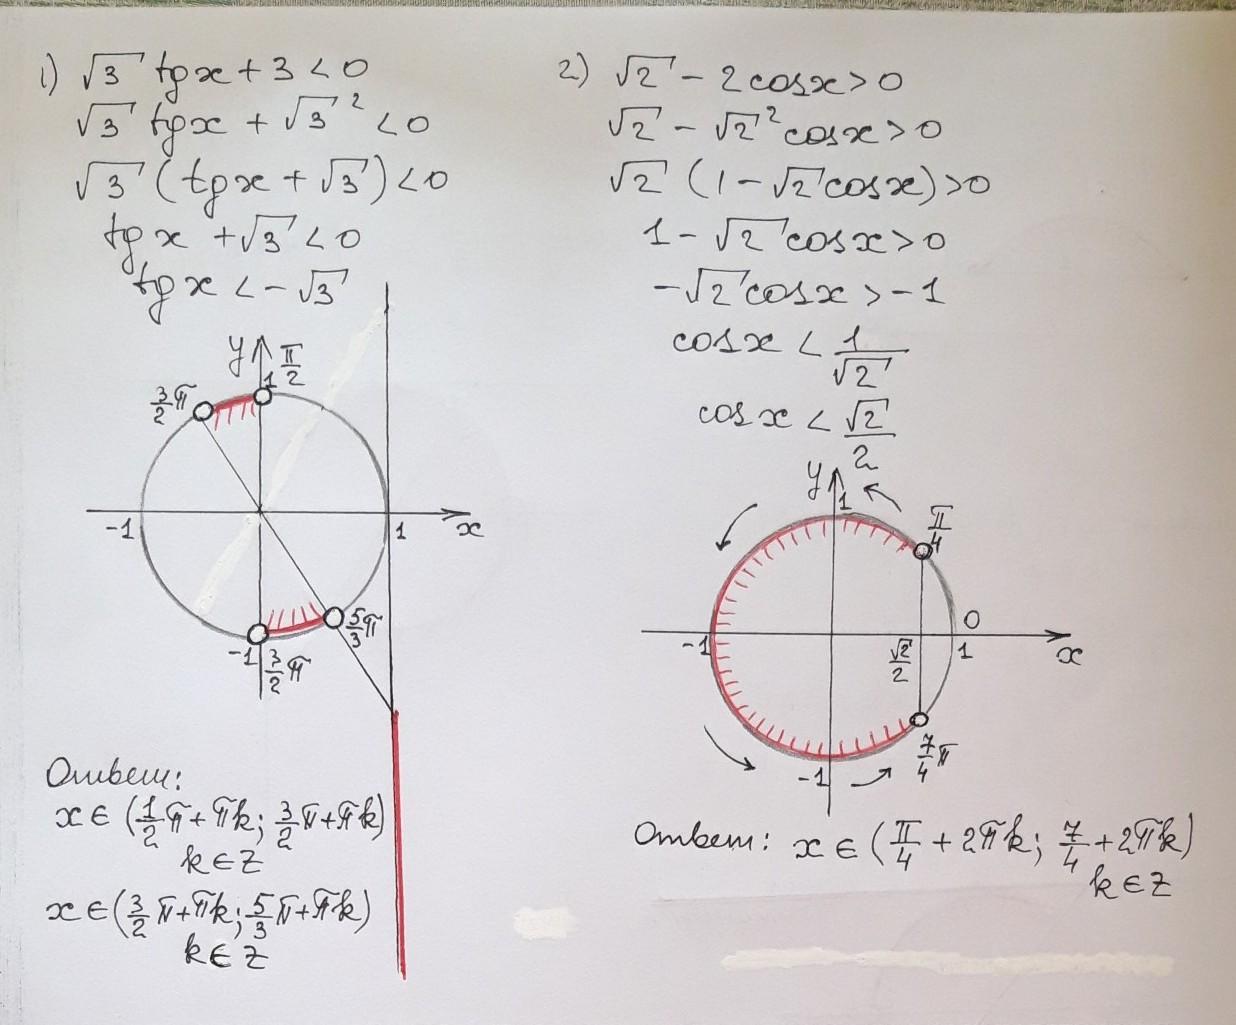 1) √3 tgx + 3 < 0
√3 tgx + √3² < 0
√3 (tgx + √3) < 0
tgx + √3 < 0
tgx < -√3
y
π/2
1
3/2 π
-1
1
x
5/3 π
-1
3/2 π
Ответ:
x ∈ (1/2 π + πk; 3/2 π + πk)
k ∈ Z
x ∈ (3/2 π + πk; 5/3 π + πk)
k ∈ Z
2) √2 - 2cosx > 0
√2 - √2² cosx > 0
√2 (1 - √2 cosx) > 0
1 - √2 cosx > 0
-√2 cosx > -1
cosx < 1/√2
cosx < √2/2
y
1
π/4
0
-1
√2/2
1
x
7/4 π
-1
Ответ: x ∈ (π/4 + 2πk; 7/4 + 2πk)
k ∈ Z